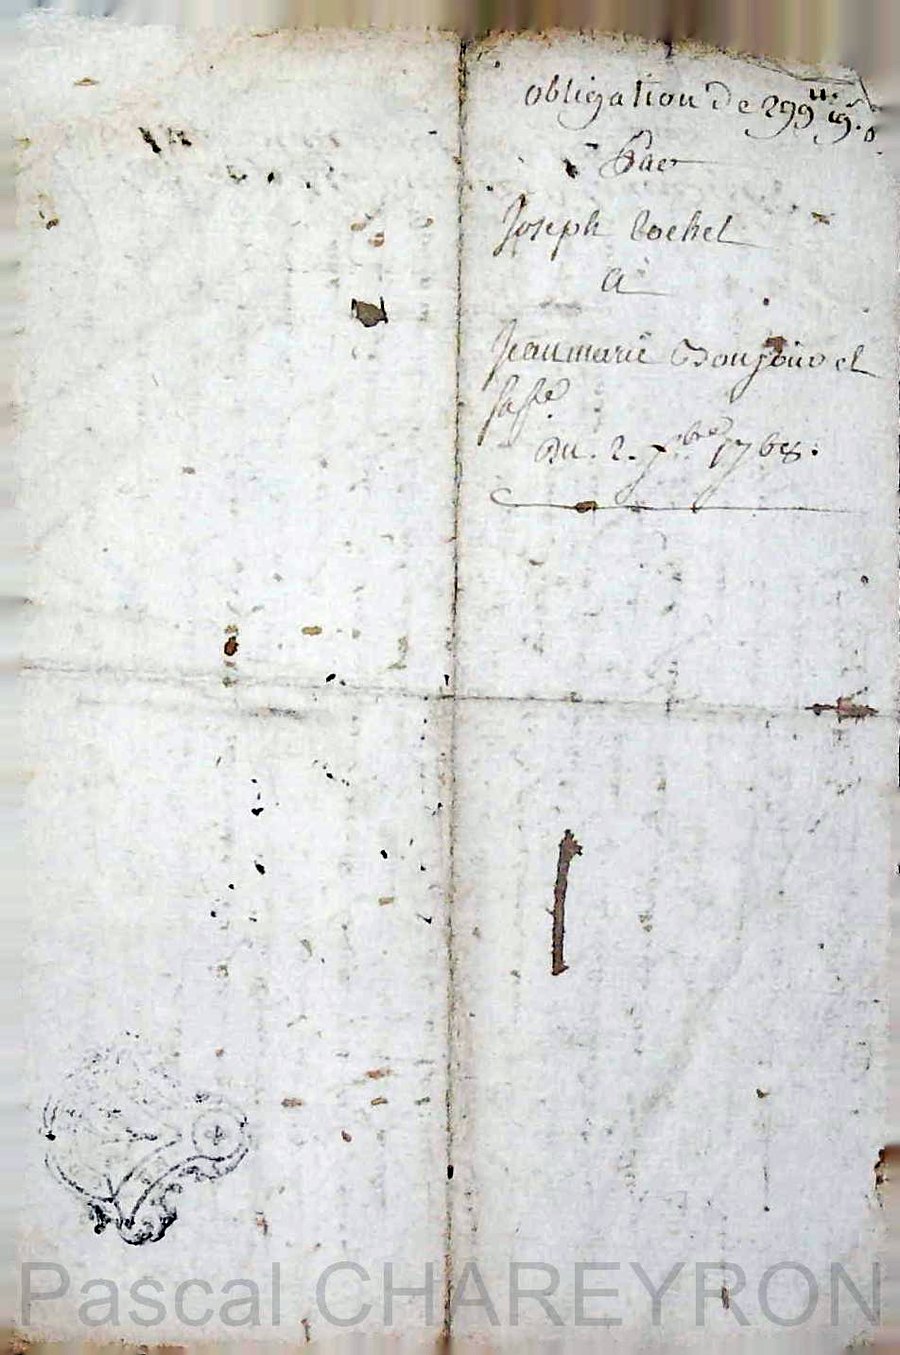 obligation de 299 ᶫᶫ 19 ˢ
Par
Joseph Rochet
A
Jeanmarie Bonjour et
sa fe
Du. 2. 7bre 1768.
Pascal CHAREYRON